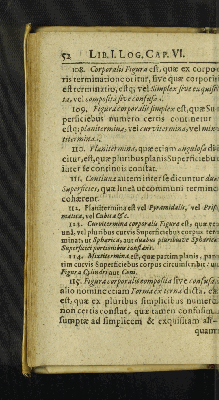 52 LIB. I. LOG. CAP. VI.
108. Corporalis Figura est, quæ ex corpo-
ris terminatione oritur, sive quæ corporis
est terminatio, estq; vel Simplex sive exquisi-
ta, vel composita sive confusa.
109. Figura corporalis simplex est, quæ Su-
perficiebus numero certis continetur
estq; planitermina, vel curvitermina, vel mix-
titermina.
110. Planitermina, quæ etiam angulosa di-
citur, est, quæ pluribus planis Superficiebus
inter se continuis constat.
111. Continuæ autem inter se dicuntur duæ
Superficies, quæ linea ut communi termino
cohærent.
112. Planitermina est vel Pyramidalis, vel Pris-
matica, vel Cubica &c.
113. Curvitermina corporalis Figura est, quæ vel
unâ, vel pluribus curvis Superficiebus corpus ter-
minat; ut Sphærica, aut duabus pluribusve Sphæricæ
Superficiei portionibus constans.
114. Mixtitermina est, quæ partim planis, par-
tim curvis Superficiebus corpus circumscribit: ut
Figura Cylindri aut Coni.
115. Figura corporalis composita sive confusa,
alio nomine etiam Forma externa dicta,
est, quæ ex pluribus simplicibus numero
non certis constat, quæ tamen confusim
sumptæ ad simplicem & exquisitam
quam